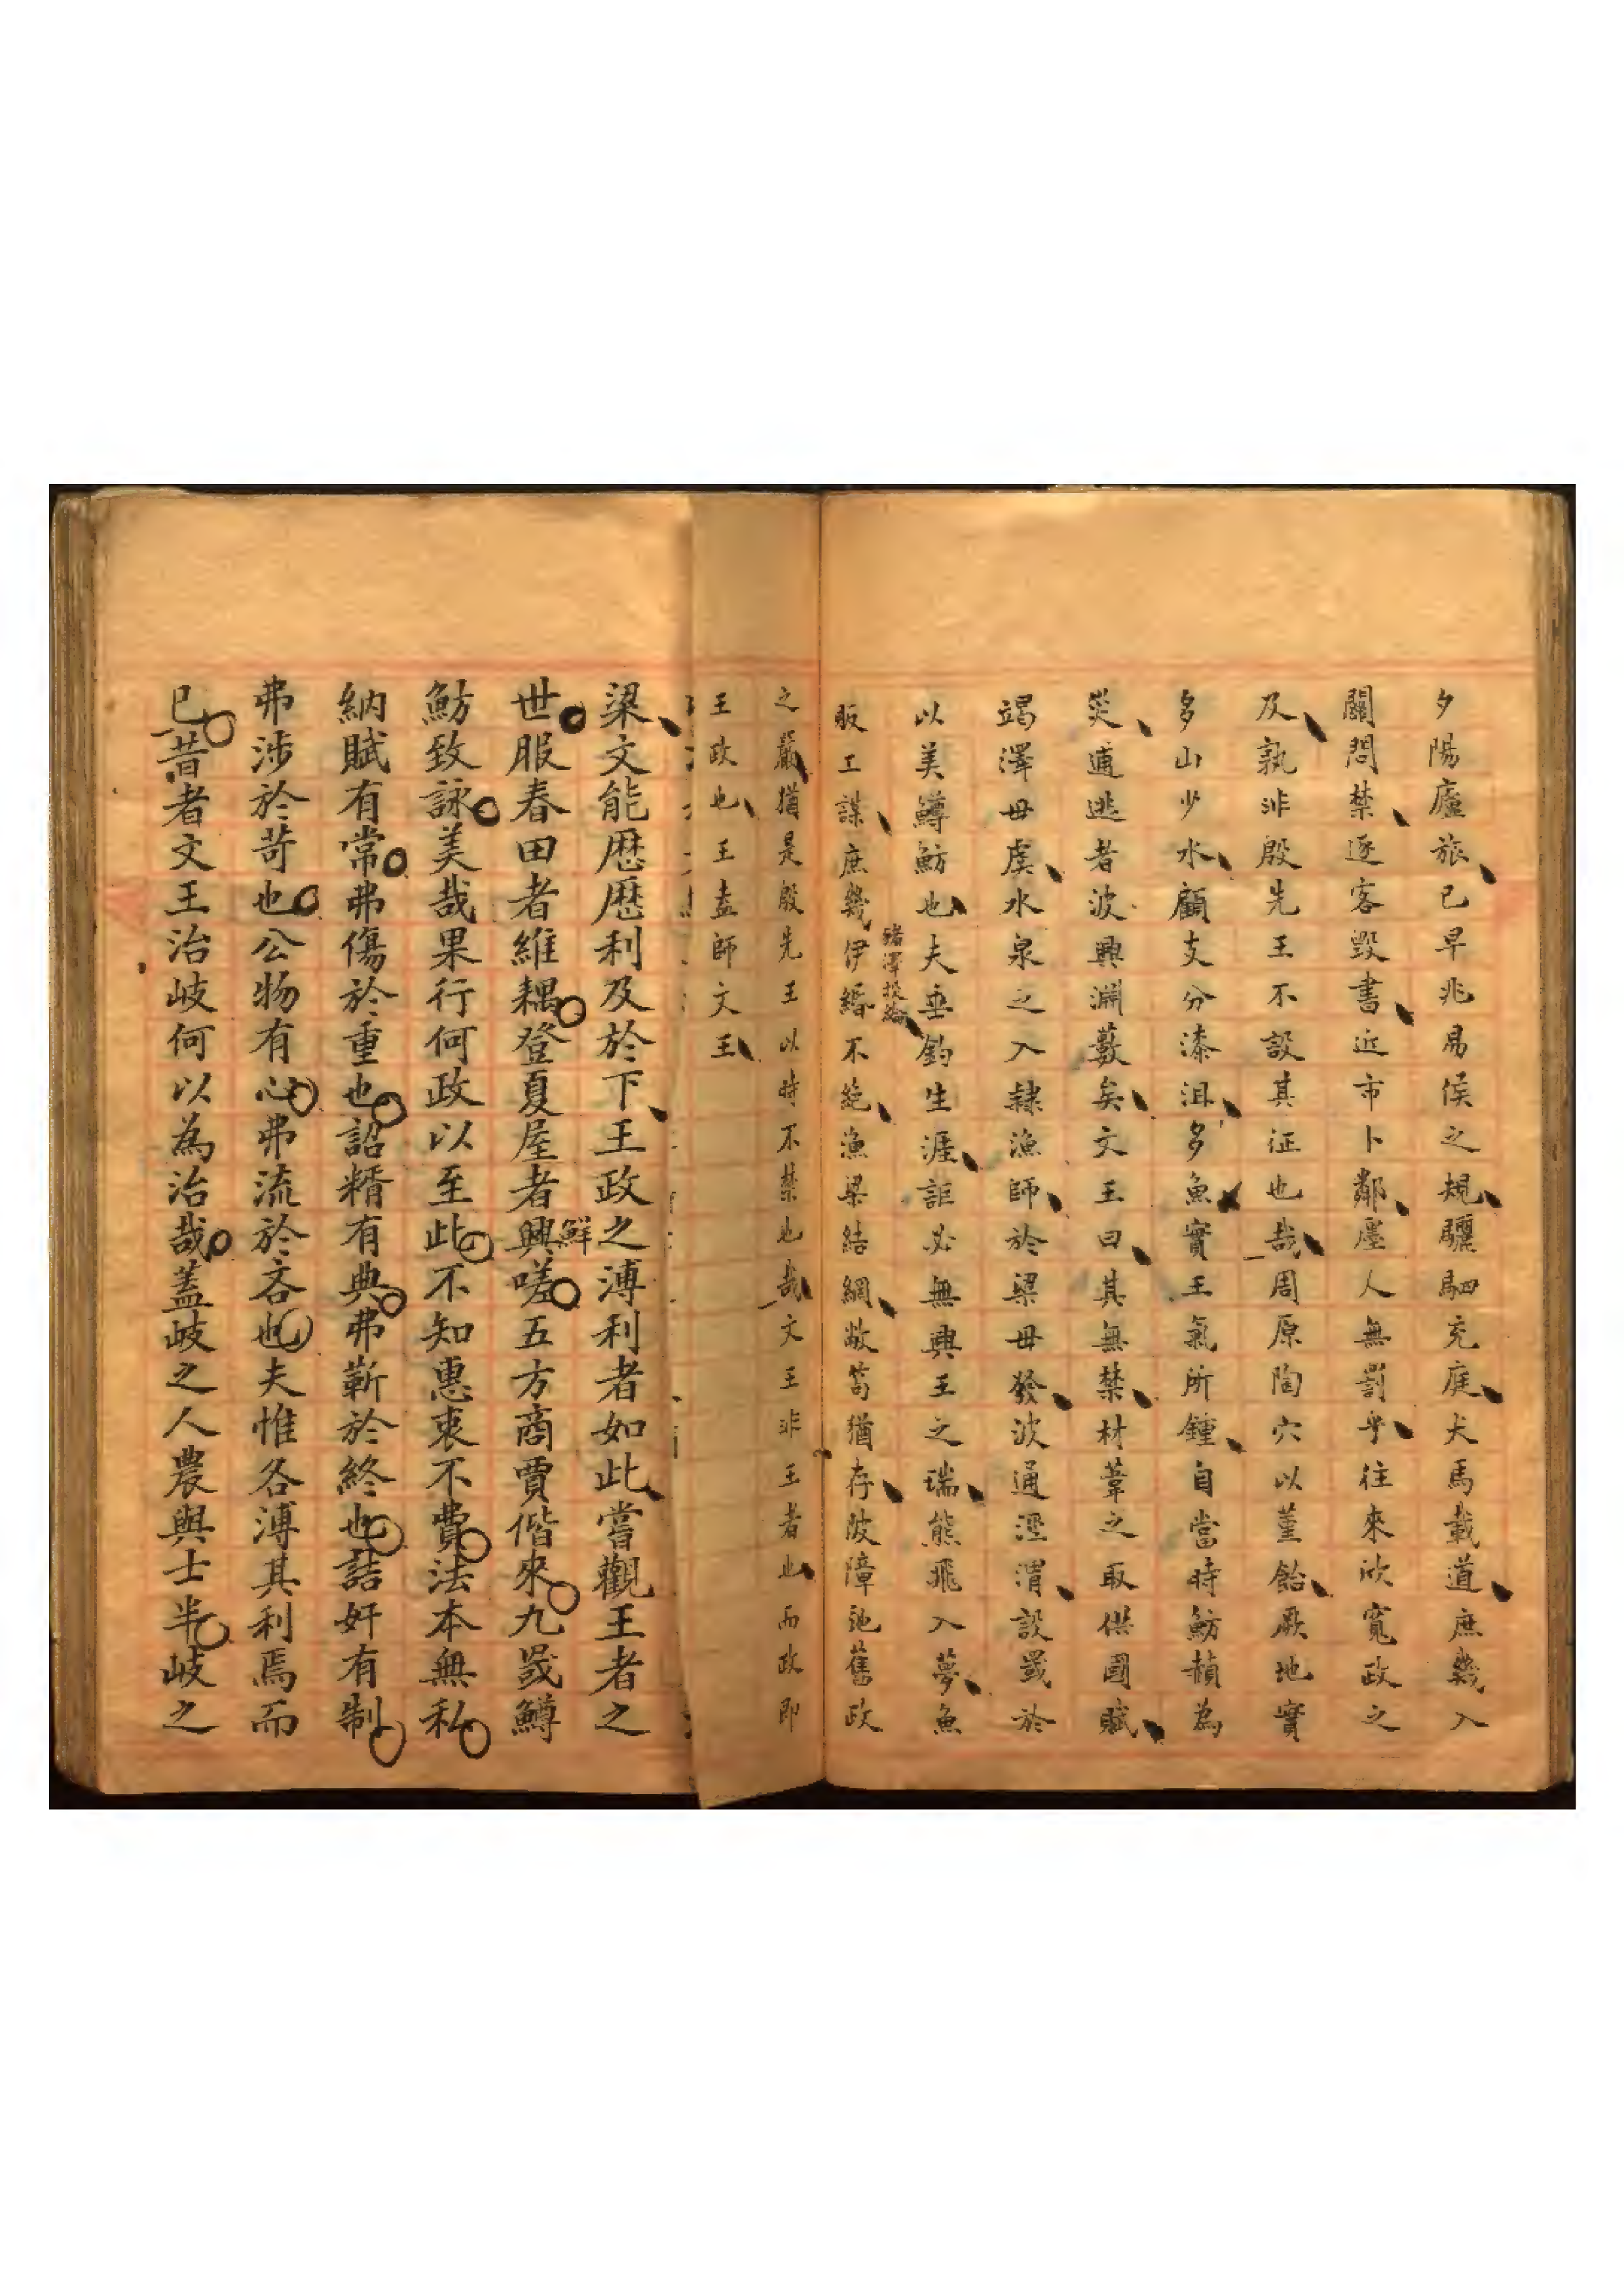 夕陽廬旅已早兆易侯之規驪駟充庭犬馬載道庶幾入
關問禁逐客毀書近市卜鄰廛人無罰乎往來欣寬政之
及孰非殷先王不設其征也哉周原陶穴以堇飴厥地實
多山少水顧支分漆沮多魚實王氣所鍾自當時魴赬為
災逋逃者波興淵藪矣文王曰其無禁材葦之取供國賦
竭澤毋虞水泉之入隸漁師於梁毋發波通涇渭設罛於
以美鱒魴也夫垂釣生涯詎必無興王之瑞熊飛入夢魚
販工謀庶幾伊緡不絕漁梁結網敝笱猶存陂障池舊政
之嚴猶是殷先王以時不禁也哉文王非王者也而政即
王政也王盍師文王
梁文能歷歷利及於下王政之溥利者如此嘗觀王者之
世服春田者維耦登夏屋者興嗟五方商賈偕來九罭鱒
鮮
魴致詠美哉果行何政以至此不知惠衷不費法本無私
納賦有常弗傷於重也詔糈有典弗蘄於終也詰奸有制
弗涉於苛也公物有心弗流於吝也夫惟各溥其利焉而
已昔者文王治岐何以為治哉蓋岐之人農與士半岐之